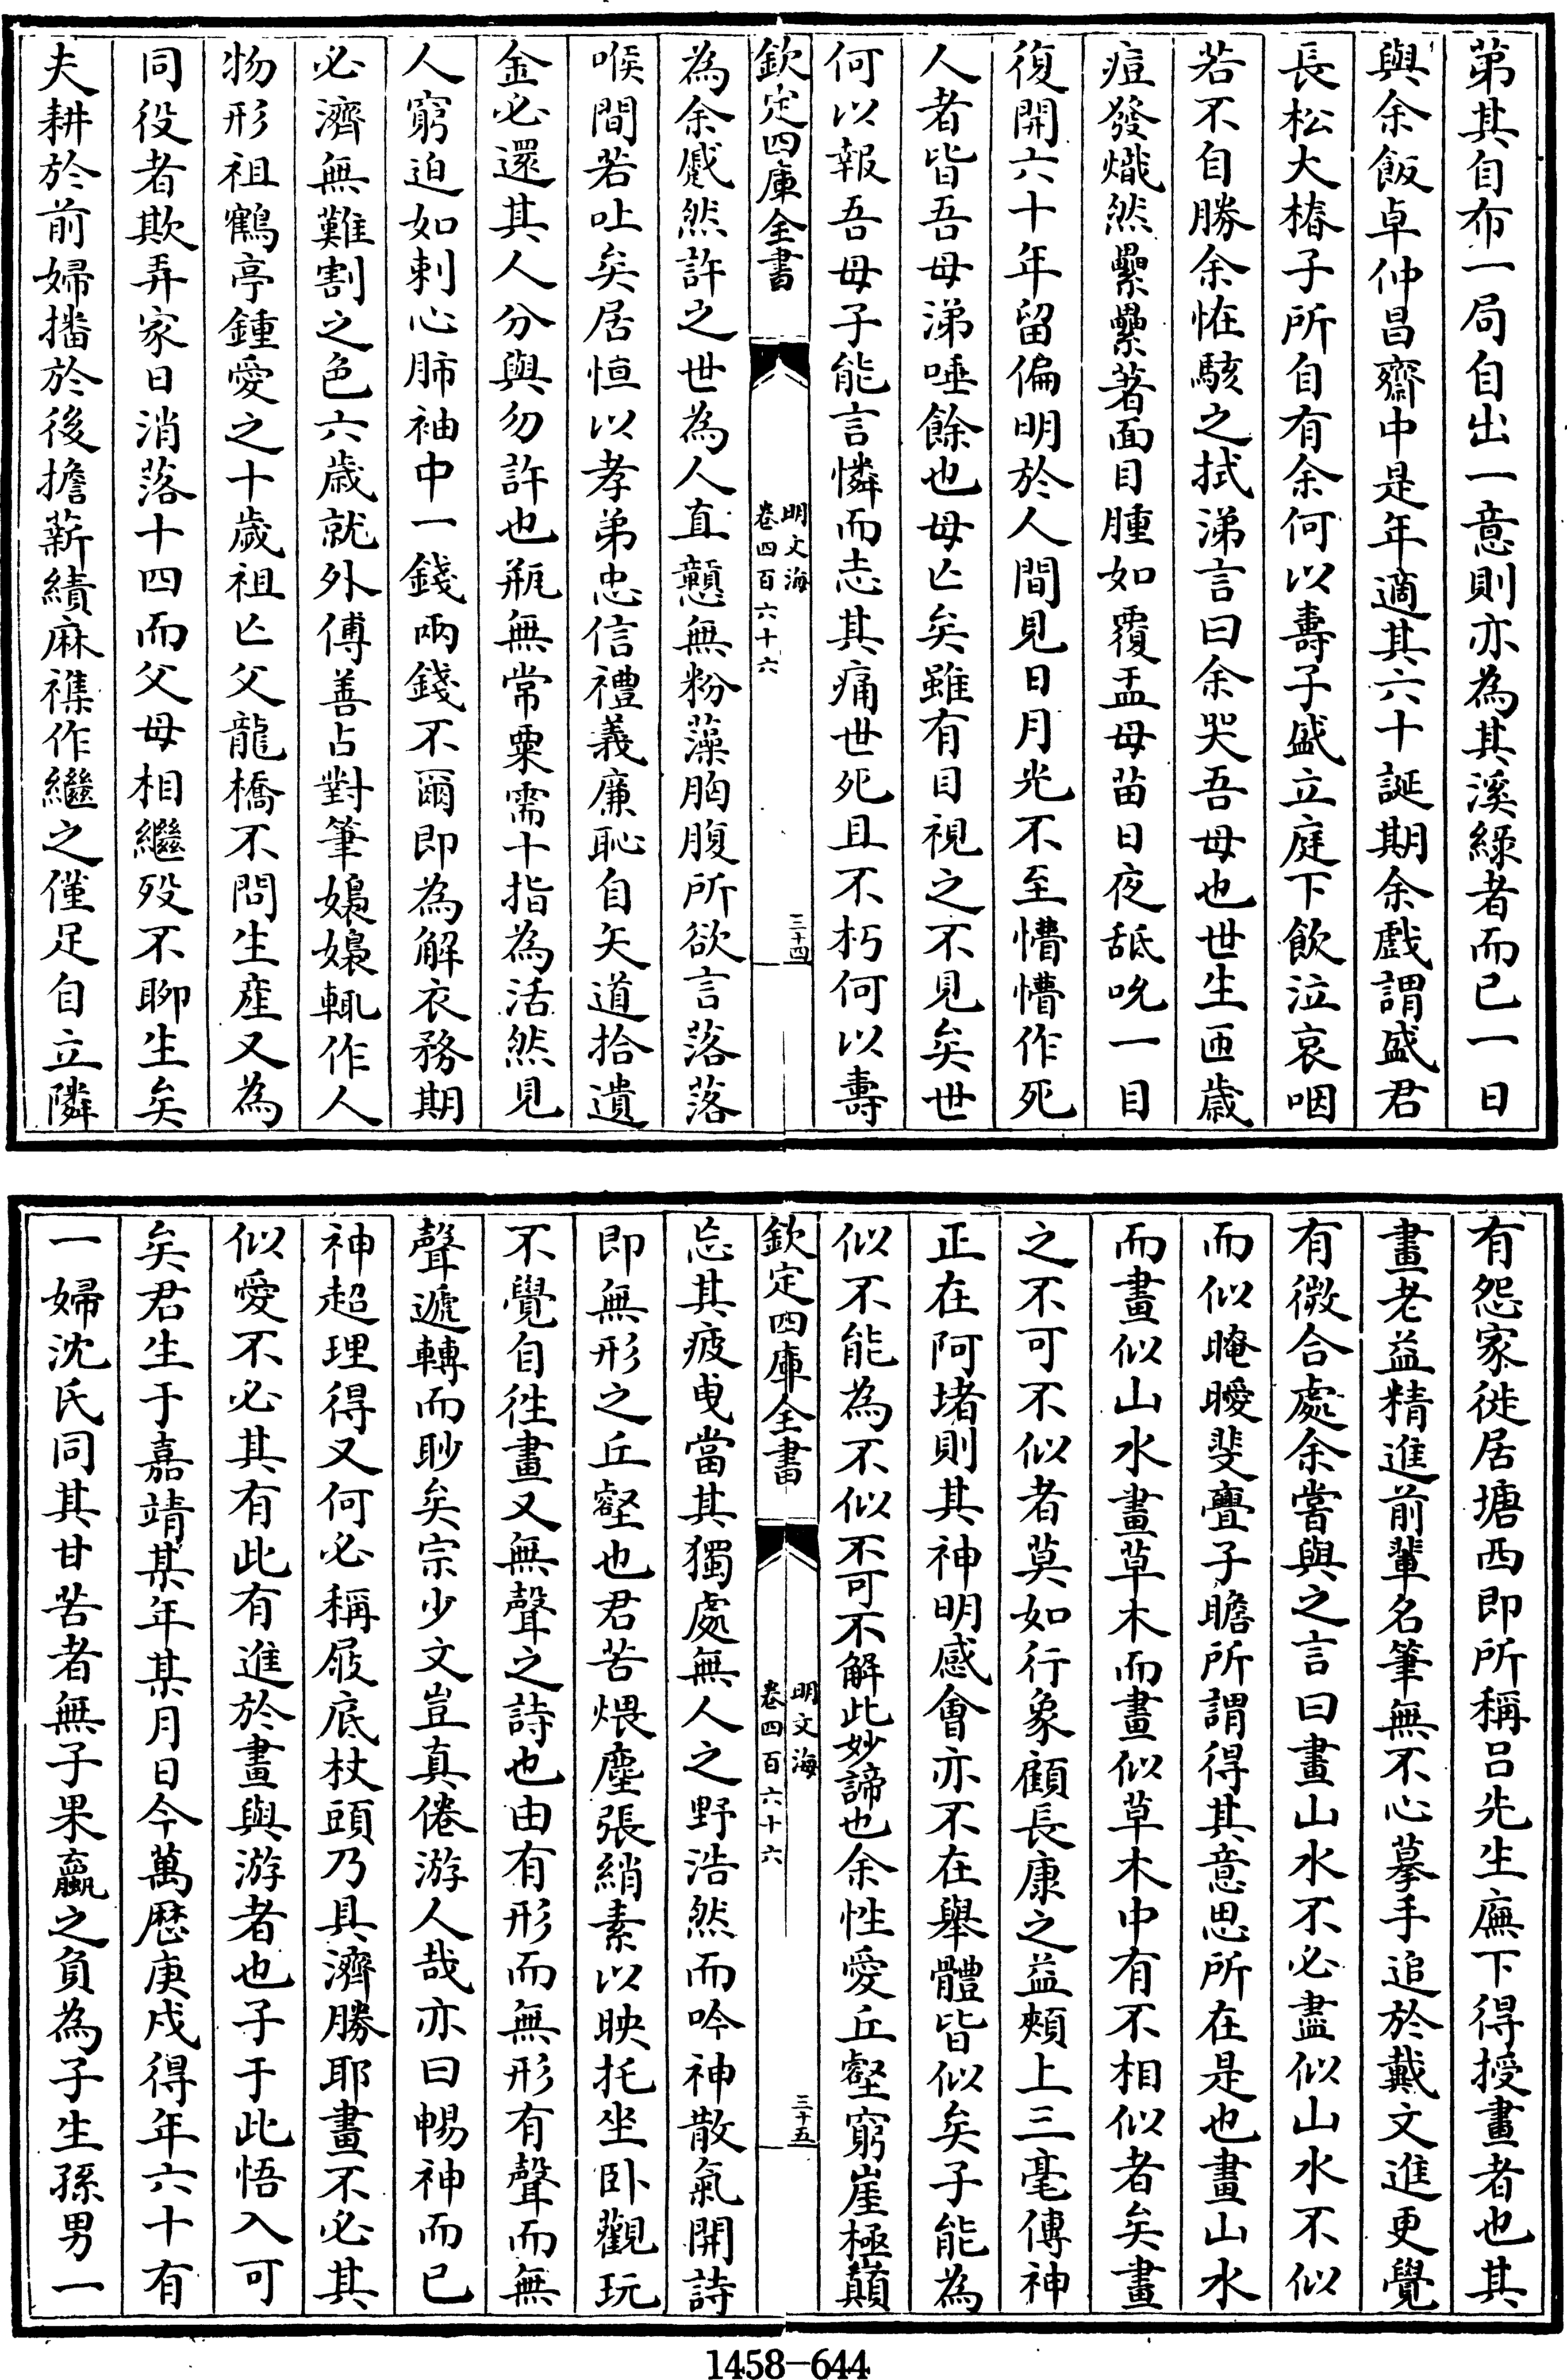 第其自布一局自出一意則亦為其溪緑者而已一日
與余飯卓仲昌齋中是年適其六十誕期余戲謂盛君
長松大椿子所自有余何以壽子盛立庭下飲泣哀咽
若不自勝余恠駭之拭涕言曰余哭吾母也世生匝歳
痘發熾然纍纍著面目腫如覆盂母苗日夜舐吮一目
復開六十年留偏明於人間見日月光不至懵懵作死
人者皆吾母涕唾餘也母亡矣雖有目視之不見矣世
何以報吾母子能言憐而志其痛世死且不朽何以壽
欽定四庫全書
明文海
卷四百六十六
三十四
為余慼然許之世為人直戅無粉藻胸腹所欲言落落
喉間若吐矣居恒以孝弟忠信禮義廉恥自矢道拾遺
金必還其人分與勿許也瓶無常粟需十指為活然見
人窮迫如刺心肺袖中一錢兩錢不爾即為解衣務期
必濟無難割之色六歳就外傅善占對筆嬝嬝輒作人
物形祖鶴亭鍾愛之十歲祖亡父龍橋不問生産又為
同役者欺弄家日消落十四而父母相繼歿不聊生矣
夫耕於前婦播於後擔薪績麻襍作繼之僅足自立隣
有怨家徙居塘西即所稱呂先生廡下得授畫者也其
畫老益精進前輩名筆無不心摹手追於戴文進更覺
有微合處余嘗與之言曰畫山水不必盡似山水不似
而似晻曖斐亹子瞻所謂得其意思所在是也畫山水
而畫似山水畫草木而畫似草木中有不相似者矣畫
之不可不似者莫如行象顧長康之益頰上三毫傳神
正在阿堵則其神明感會亦不在舉體皆似矣子能為
似不能為不似不可不解此妙諦也余性愛丘壑窮崖極巔
欽定四庫全書
明文海
卷四百六十六
三十五
忘其疲曳當其獨處無人之野浩然而吟神散氣開詩
即無形之丘壑也君苦煨塵張綃素以映托坐卧觀玩
不覺自徃畫又無聲之詩也由有形而無形有聲而無
聲遞轉而眇矣宗少文豈真倦游人哉亦曰暢神而已
神超理得又何必稱屐底杖頭乃具濟勝耶畫不必其
似愛不必其有此有進於畫與游者也子于此悟入可
矣君生于嘉靖某年某月日今萬厯庚戍得年六十有
一婦沈氏同其甘苦者無子果蠃之負為子生孫男一
1458-644